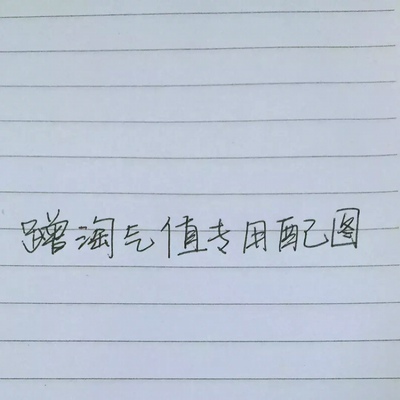 蹭淘气值专用配图